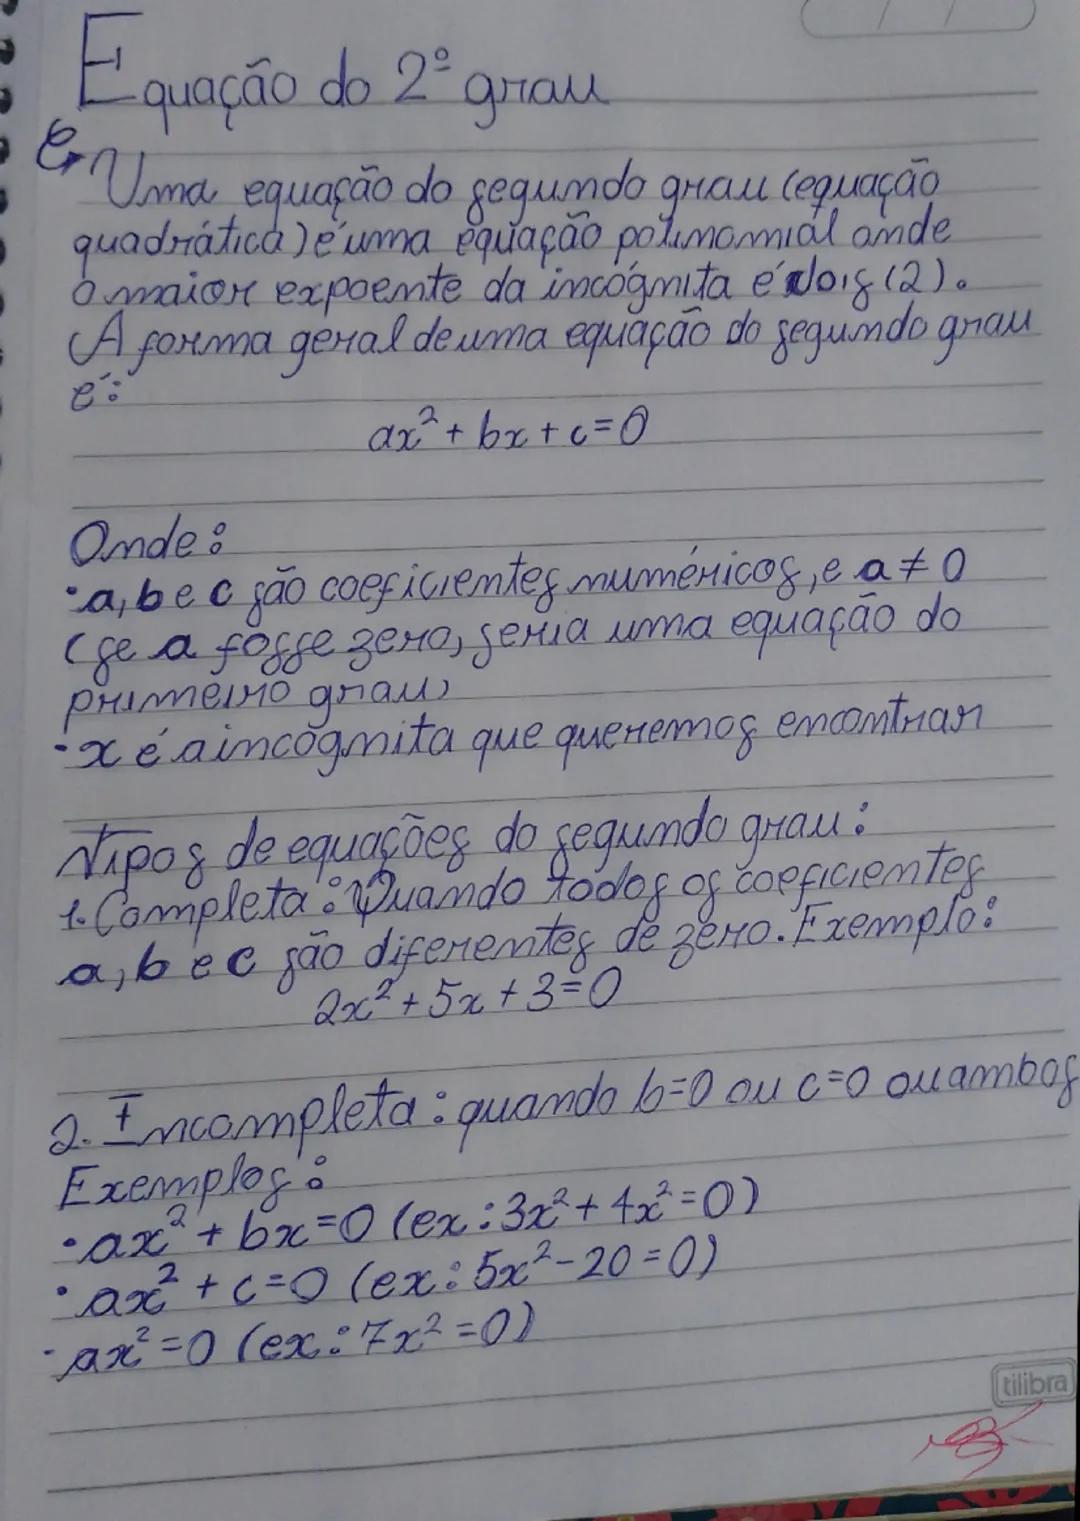 Equação do 2º grau
Uma equação do segundo grau (equação
quadrática) é uma equação polinomial onde
o maior expoente da incógnita é dois (2).
A forma geral de uma equação do segundo grau
é:
ax² + bx + c = 0
Onde:
• a, b e c são coeficientes numéricos, e a ≠ 0
(se a fosse zero, seria uma equação do
primeiro grau)
• x é a incógnita que queremos encontrar
Tipos de equações do segundo grau:
1. Completa: Quando todos os coeficientes
a, b e c são diferentes de zero. Exemplo:
2x² + 5x + 3 = 0
2. Incompleta: quando b=0 ou c=0 ou ambos
Exemplos:
• ax² + bx = 0 (ex: 3x² + 4x² = 0)
• ax² + c = 0 (ex: 5x² - 20 = 0)
• ax² = 0 (ex: 7x² = 0)
tilibra